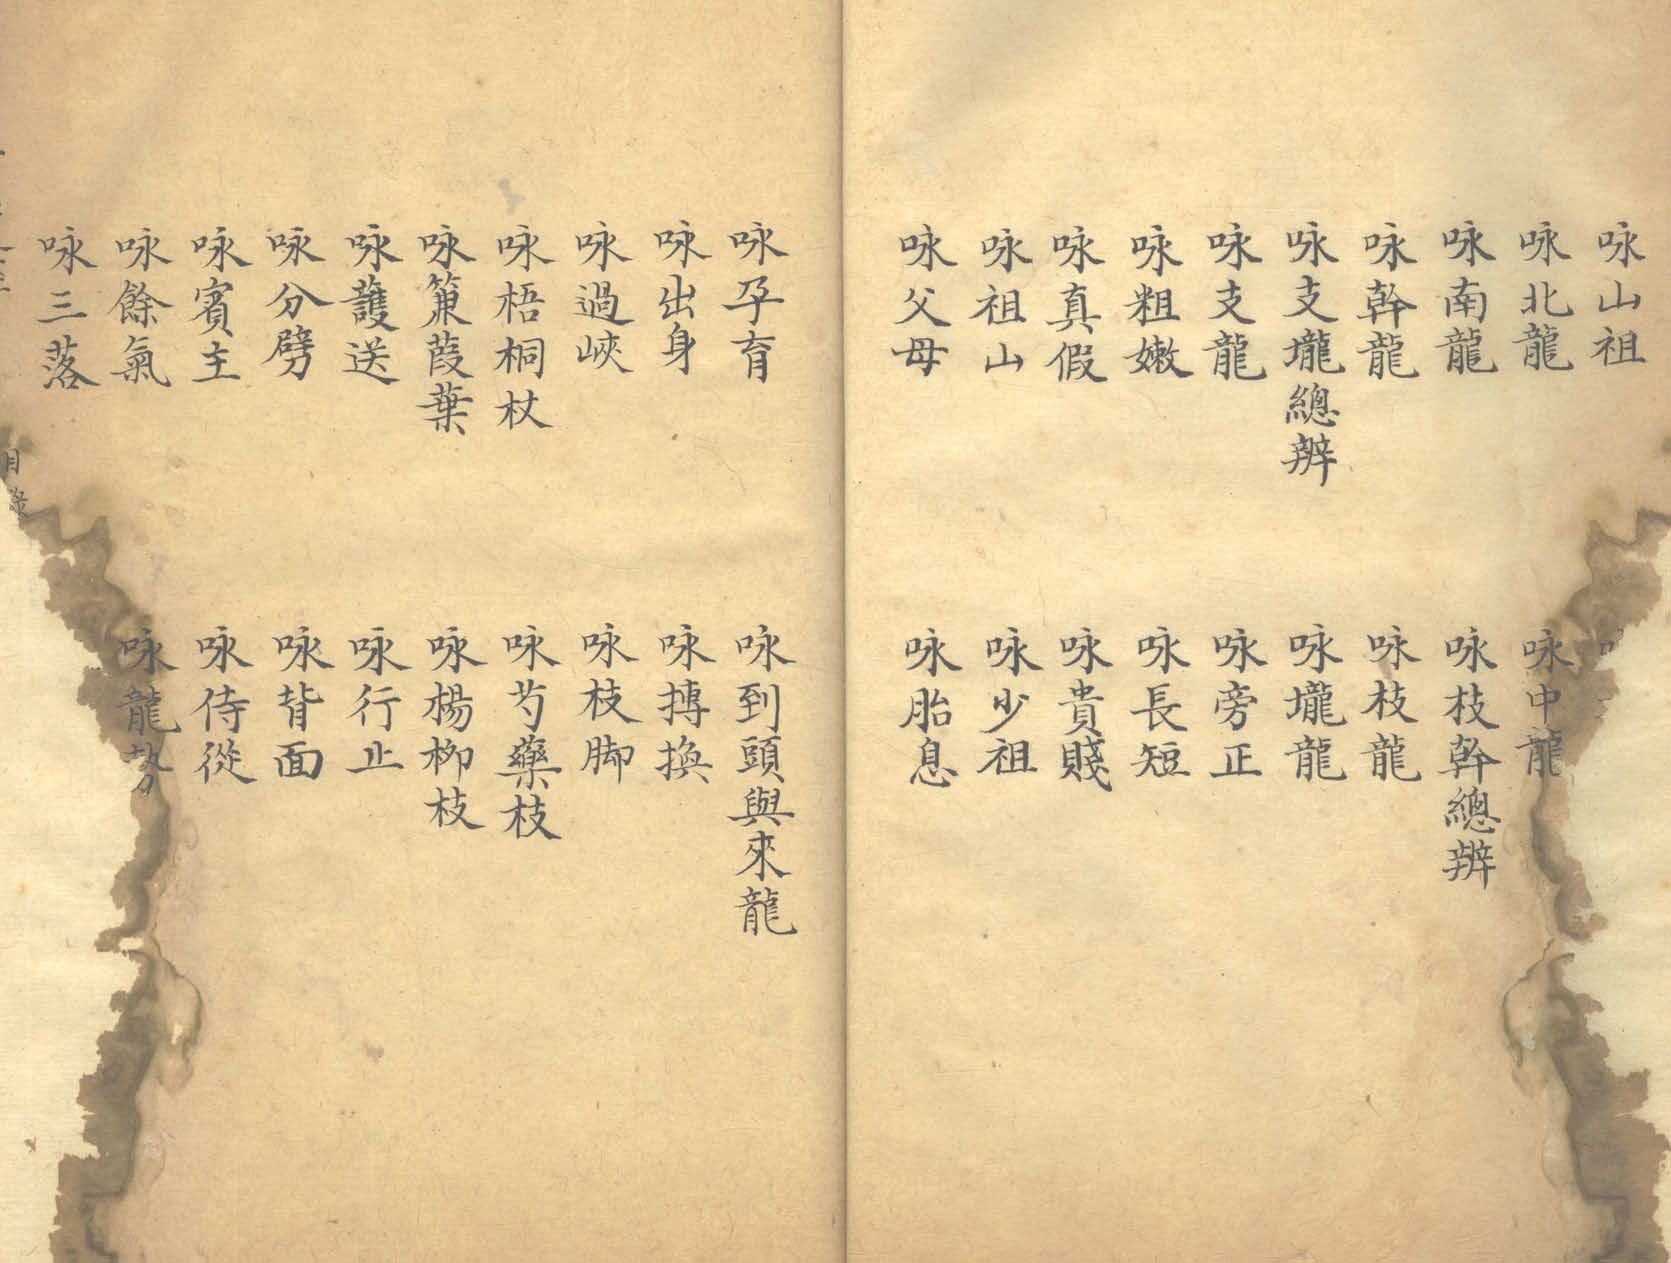 咏山祖
咏北龍
咏中龍
咏南龍
咏枝幹總辨
咏幹龍
咏枝龍
咏支壠總辨
咏壠龍
咏支龍
咏旁正
咏粗嫩
咏長短
咏真假
咏貴賤
咏祖山
咏少祖
咏父母
咏胎息
咏孕育
咏到頭與來龍
咏出身
咏摶換
咏過峽
咏枝脚
咏梧桐杖
咏芍藥枝
咏蒹葭葉
咏楊柳枝
咏護送
咏行止
咏分劈
咏背面
咏賓主
咏侍從
咏餘氣
咏龍勢
咏三落
目